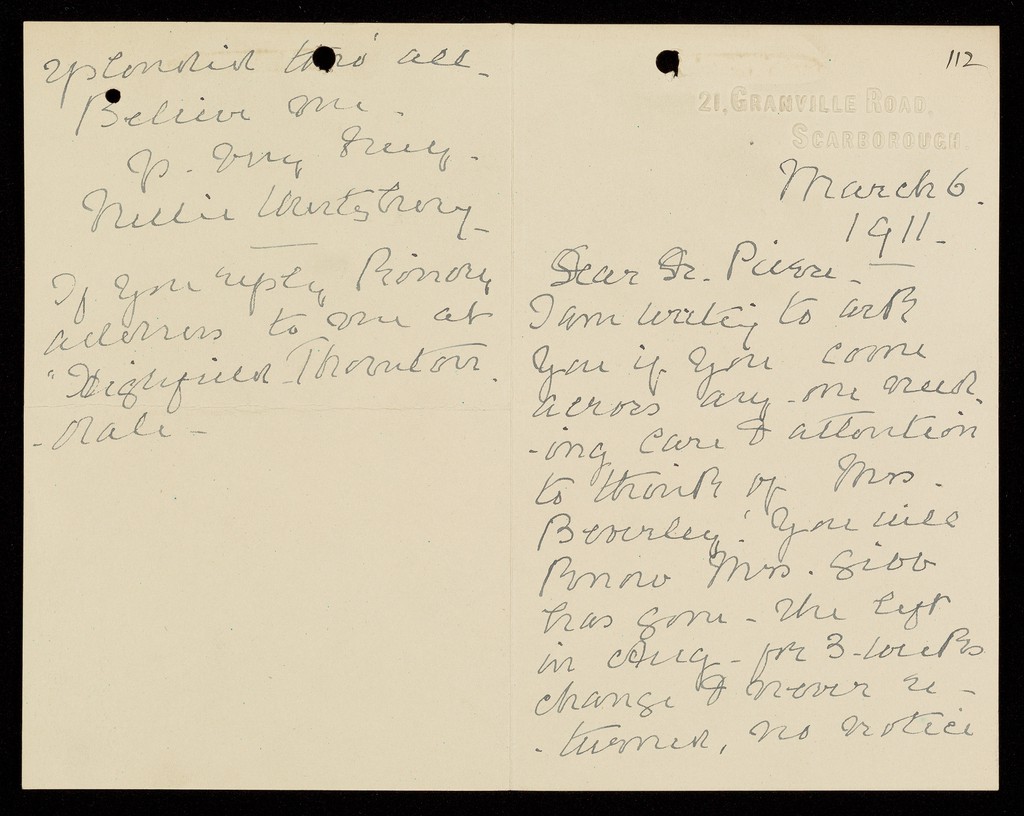 112
21, GRANVILLE ROAD,
SCARBOROUGH.
March 6.
1911.
Dear Dr. Pierce -
I am writing to ask
you if you come
across any-one need-
-ing care & attention
to think of Mrs.
Beverley! You will
know Mrs. Gibb
has gone - She left
in Aug - for 3-weeks
change & never re-
-turned, no notice
splendid thro' all -
Believe me -
Y. Very Truly -
Nellie
If you reply kindly
address to me at
"Highfield - Thornton -
- dale -